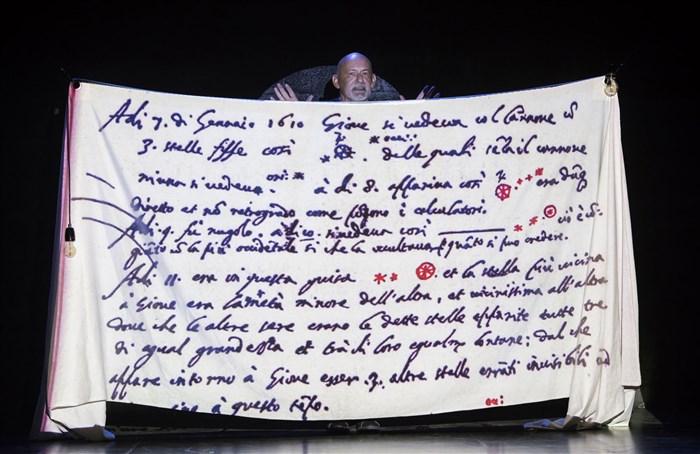 Adi 7. di Gennaio 1610 Giove si vedeva col Cannone cõ
3. stelle fisse così delle quali sẽza il cannone
niuna si vedeva. ori: à dì 8. appariva così era dũq̃
diretto et nõ retrogrado come pongono i calculatori.
Adi 9. fù nugolo. a dì 10. si vedeva così cioè cõ-
giũto cõ la più occidẽtale sì che la occultava p̱ quãto si può credere.
Adi 11. era in questa guisa et la stella più vicina
à Giove era la metà minore dell'altra, et vicinissima all'altra
dove che le altre sere erano le dette stelle apparite tutte tre
di egual grandezza et trà di loro egualmẽ lontane; dal che
appare intorno à Giove esser. 3. altre stelle errãti invisibili ad
à questo tẽpo.